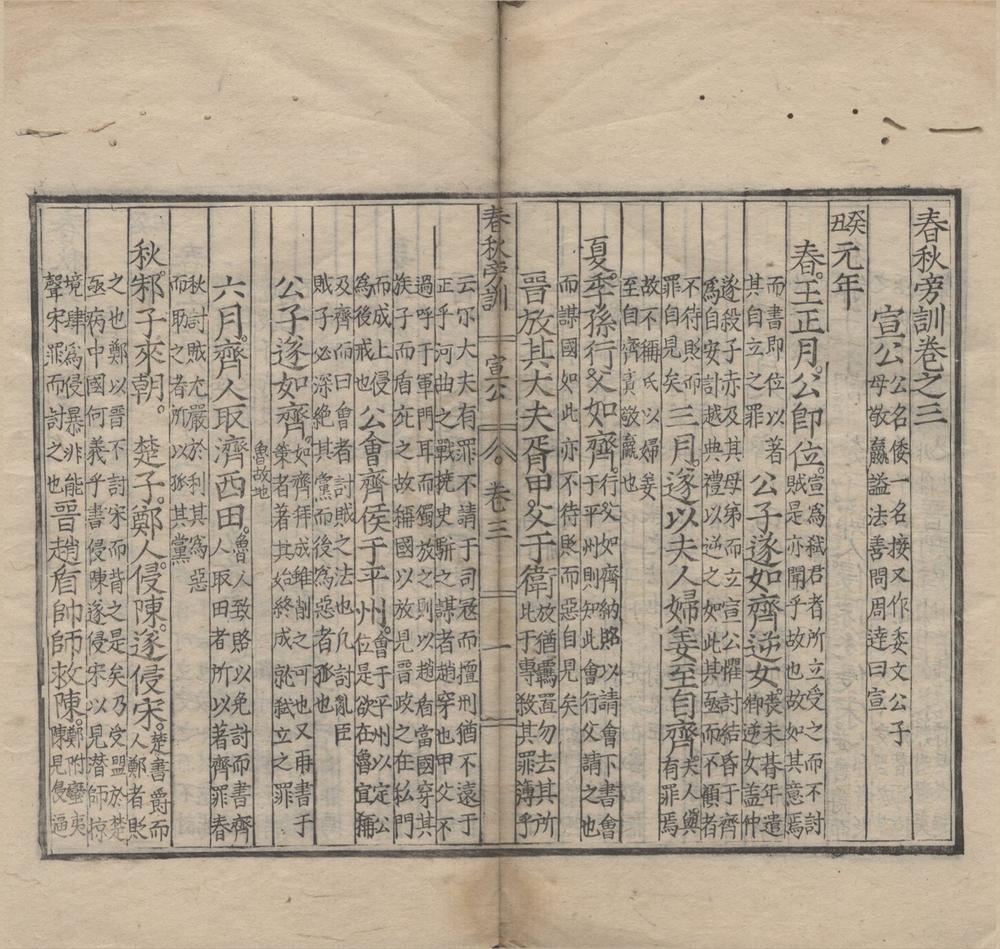 春秋旁訓卷之三
宣公
公名倭一名接又作委文公子
母敬嬴謚法善問周達曰宣
癸丑元年
春王正月公卽位
宣爲弑君者所立受之而不討
賊是亦聞乎故也故如其意焉
而書卽位以著
其自立之罪
公子遂如齊逆女
喪未朞年遣
卿逆女蓋仲
遂殺子赤及其母第而立宣公懼討結昏于齊
爲自安計越典禮以逆之如此其亟而不顧者
不待貶而
罪自見矣
三月遂以夫人婦姜至自齊
夫人與
有罪焉
故不稱氏以婦姜
至自齊責敬嬴也
夏季孫行父如齊
行父如齊納賂以請會不書會
于平州則知此會行父請之也
而謀國如此亦不待貶而惡自見矣
晉放其大夫胥甲父于衛
放猶羈置勿去其所
比于專殺其罪薄乎
春秋旁訓 宣公 卷三 一
云尔大夫有罪不請于司冦而擅刑猶不遠于
正乎河曲之戰撓史駢之謀者趙穿也甲父不
過呼于軍門耳而獨放之則以趙盾當國穿其
族子而盾庇之故稱國以放見晉政之在私門
而成上侵
爲後戒也
公會齊侯于平州
會于平州以定公
位是欲在魯宜稱
及齊而曰會者討賊之法也凡討亂臣
賊子必深絕其黨而後爲惡者孤也
公子遂如齊
如齊拜成雖削之可也又再書于
策者著其始終成就弑立之罪
六月齊人取濟西田
魯故地
魯人致賂以免討而書齊
人取田者所以著齊罪春
秋討賊尤嚴於利其爲惡
而取之者所以孤其黨
秋邾子來朝
楚子鄭人侵陳遂侵宋
楚書爵而
人鄭者貶
之也鄭以晉不討宋而背之是矣乃受盟於楚
亟病中國何義乎書侵陳遂侵宋以見潛師掠
境肆爲侵暴非能
聲宋罪而討之也
晉趙盾帥師救陳
鄭附蠻夷
陳見侵逼